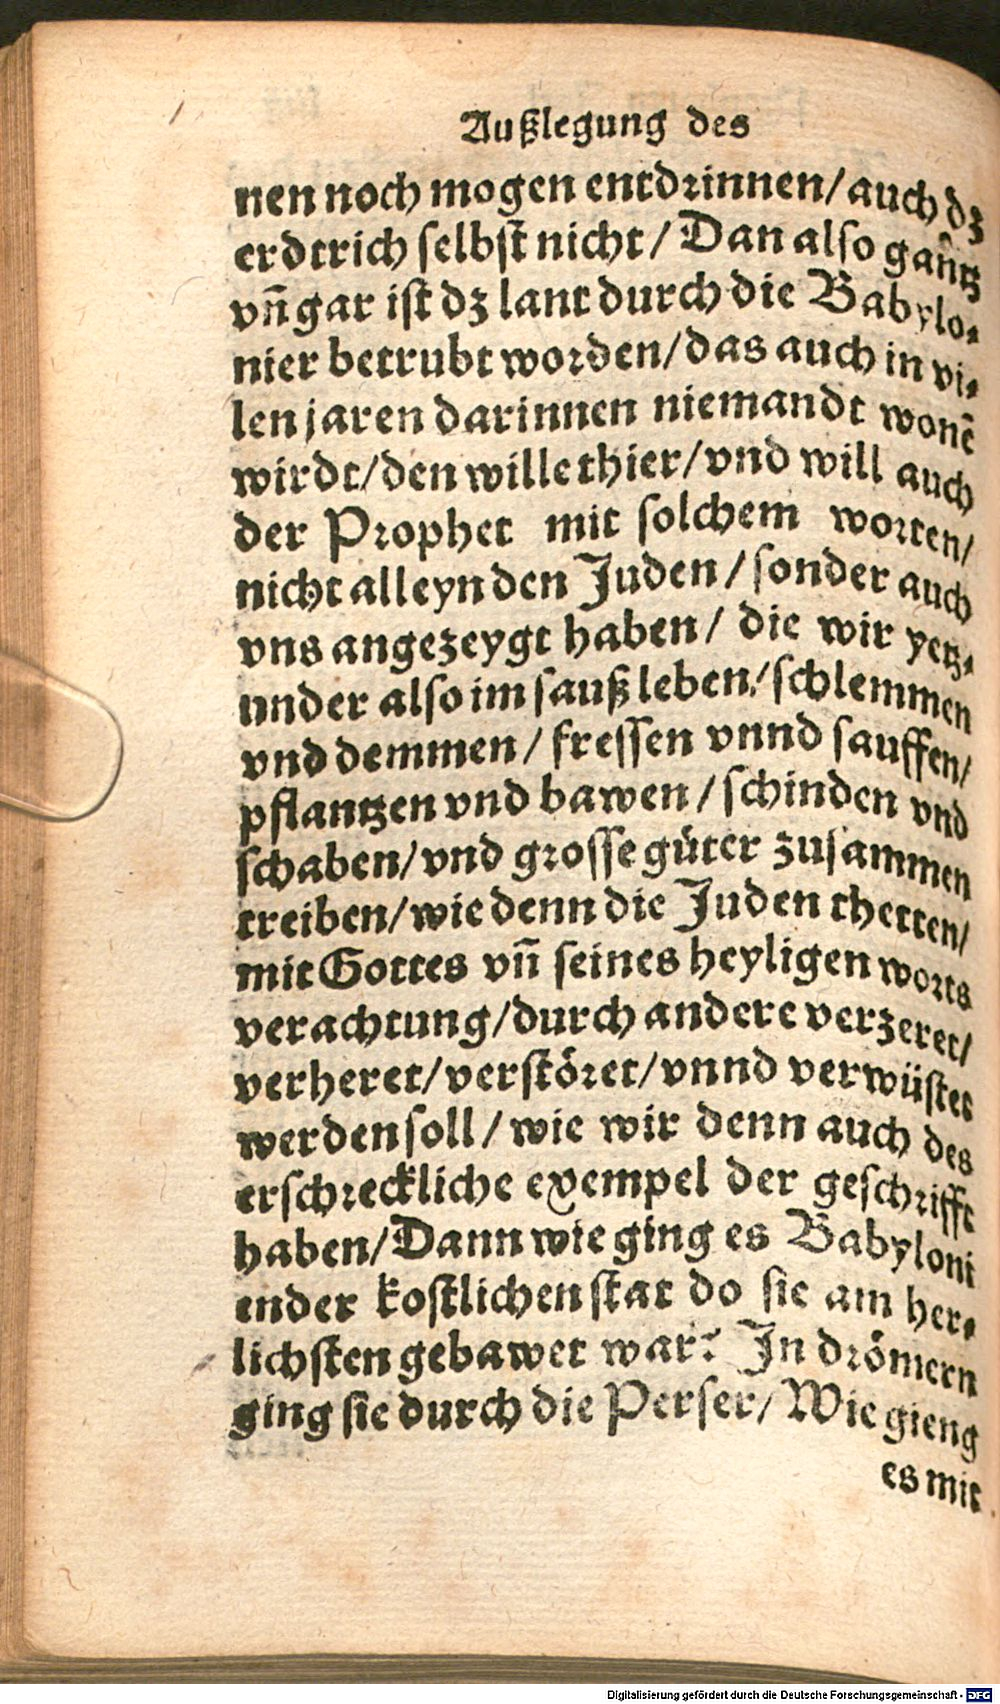 Außlegung des
nen noch mogen entdrinnen/ auch dz
erdtrich selbst nicht/ Dan also gantz
vn̄ gar ist dz lant durch die Babylo⸗
nier betrubt worden/ das auch in vi⸗
len jaren darinnen niemandt wonē
wirdt/ den wille thier/ vnd will auch
der Prophet mit solchem worten/
nicht alleyn den Juden/ sonder auch
vns angezeygt haben/ die wir yetz⸗
under also im sauß leben/ schlemmen
vnd demmen/ fressen vnnd sauffen/
pflantzen vnd bawen/ schinden vnd
schaben/ vnd grosse güter zusammen
treiben/ wie denn die Juden thetten/
mit Gottes vn̄ seines heyligen worts
verachtung/ durch andere verzeret/
verheret/ verstöret/ vnnd verwüstet
werden soll/ wie wir denn auch des
erschreckliche exempel der geschrifft
haben/ Dann wie ging es Babyloni
ender kostlichen stat do sie am her⸗
lichsten gebawet war? In drömern
ging sie durch die Perser/ Wie gieng
es mit
Digitalisierung gefördert durch die Deutsche Forschungsgemeinschaft - DFG